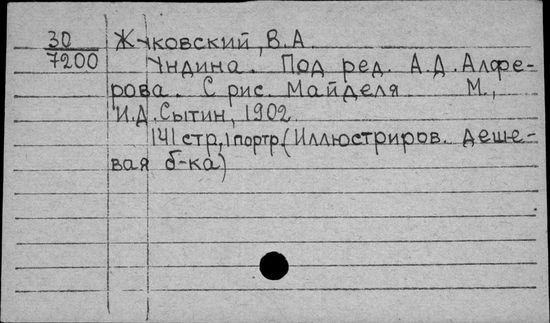 30
7200
Жуковский, В.А.
Ундина. Под ред. А.Д. Алфе-
рова. С рис. Майделя М.,
И.Д. Сытин, 1902.
141 стр., 1 портр. (Иллюстриров. деше-
вая б-ка)